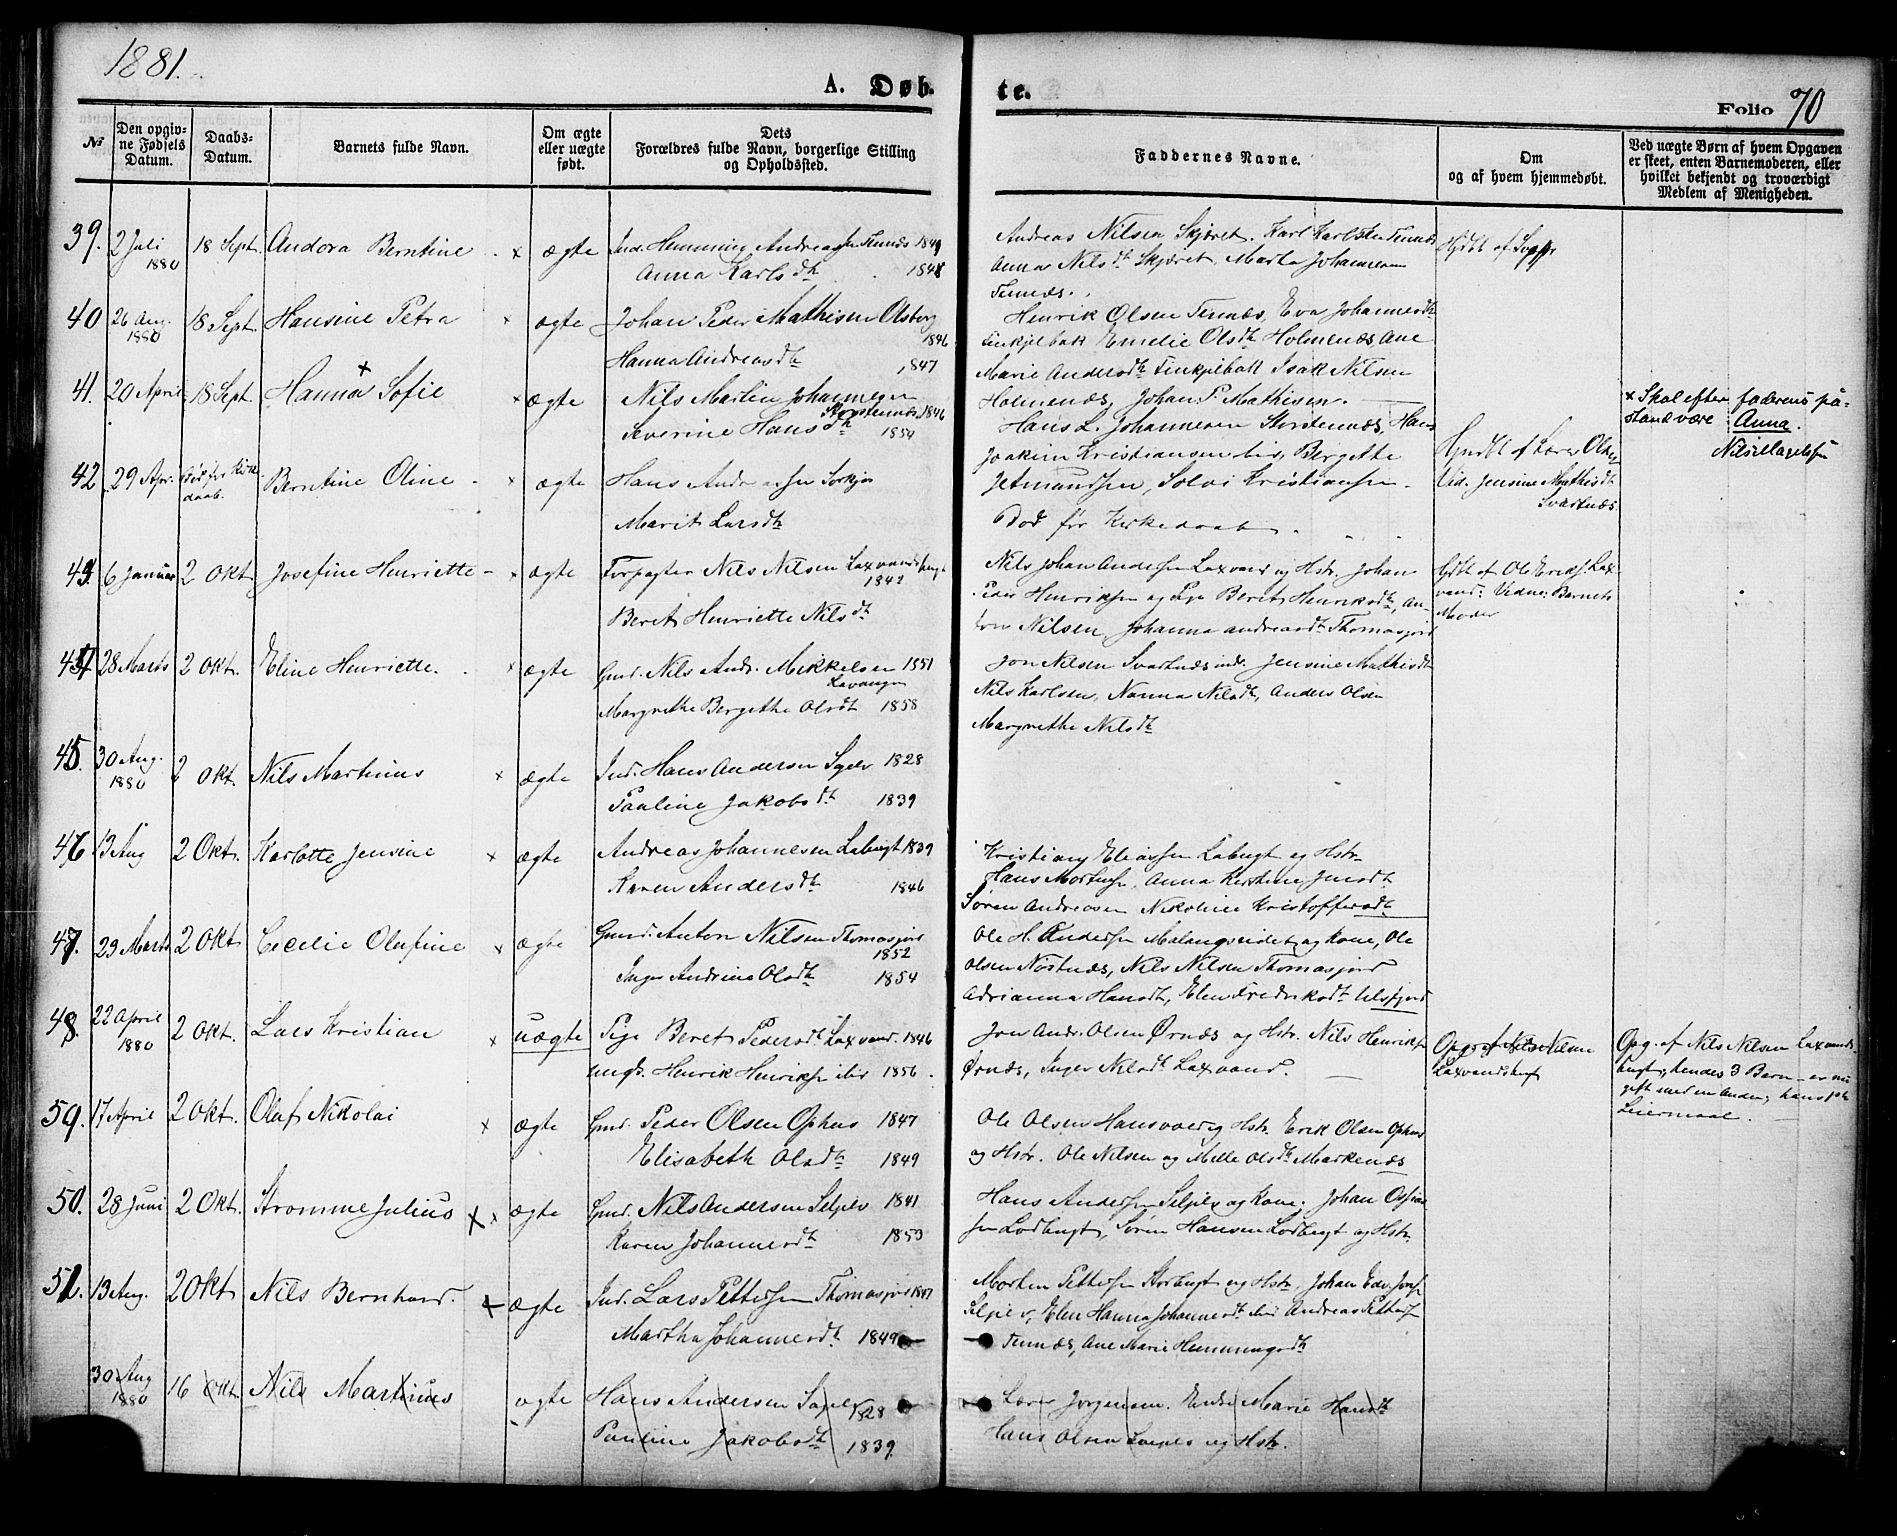 1881.
A. Døb-
te.
Folio 70
№
Den opgiv-
ne Fødsels
Datum.
Daabs-
Datum.
Barnets fulde Navn.
Om ægte
eller uægte
født.
Dets
Forældres fulde Navn, borgerlige Stilling
og Opholdssted.
Faddernes Navne.
Om
og af hvem hjemmedøbt.
Ved uægte Børn af hvem Opgaven
er skeet, enten Barnemoderen, eller
hvilket bekjendt og troværdigt
Medlem af Menigheden.
39. 2 Juli 1880 18 Sept. Andora Berntine × ægte Ind. Hemming Andreasen Tennes 1849
Anna Karlsdh 1848
Andreas Nilsen Skjæret. Karl Karlsen Tennes
Anna Nilsdh Skjæret, Marta Johannesen
Tennæs.
40 26 Aug. 1880 18 Sept. Hansine Petra × ægte Johan Peder Mathisen Olsborg
1846
Hanna Andreasdh 1847
Henrik Olsen Tennæs, Eva Johannesdh
Emelie Olsdh Holmenæs Ane
Marie Andersdh Isak Nilsen
Holmenæs, Johan P. Mathisen.
41. 20 April 18 Sept. Hanna Sofie × ægte Nils Martin Johannesen
Storstennæs 1846
Severine Hansdh 1854
Hans L. Johannesen Storstennæs, Hans
Joakim Kristiansen Bergette
Solvi Kristiansen.
× Skal efter faderens på-
stand være Anna.
42 29 Apr. Død før Kirke
daab. Berntine Oline × ægte Hans Andreassen
Marit Larsdh
Død før Kirkedaab
Hjmdbt af Lærer Olsen
Vid. Jensine Mathisdh
Svartnæs
43. 6 Januar 2 Okt. Josefine Henriette × ægte Forpagter Nils Nilsen Laxvandsbugt
1842
Beret Henriette Nilsdh
Nils Johan Andersen Laxvand og Hstr. Johan
Peder Henriksen og Pige Berit Henriksdh, An-
ton Nilsen, Johanna Andreasdt Thomasjord
Hjdbt af Ole Eriks. Lax-
vand: Vidne: Barnets
Moder
44 28 Marts 2 Okt. Eline Henriette. × ægte Gmd. Nils Andr. Mikkelsen 1851
Lavangen
Margrethe Bergethe Olsdh 1858
Jon Nilsen Svartnæs Jensine Mathisdh
Nils Karlsen, Nanna Nilsdh, Anders Olsen
Margrethe Nilsdh
45. 30 Aug. 1880 2 Okt. Nils Martinus × ægte Ind. Hans Andersen 1828
Pauline Jakobsdh 1839
46 13 Aug 2 Okt. Karlotte Jensine × ægte Andreas Johannesen Labugt 1839
Karen Andersdh 1846
Kristian Eliassen Labugt og Hstr.
Hans Mortensen, Anna Kirstine Jensdh
Søren Andreasen Nikoline Kristoffersdh
47. 23 Marts 2 Okt Cecelie Olufine × ægte Gmd. Anton Nilsen Thomasjord
1852
Inger Andrine Olsdh 1854
Ole H. Andersen Malangseidet og Kone, Ole
Olsen Nostnæs, Nils Nilsen Thomasjord
Adrianna Hansdh, Elen Fredriksdh
48. 22 April 1880 2 Okt. Lars Kristian × uægte Pige Beret Pedersdh Laxvand. 1846
ungk. Henrik Henriksen 1856.
Jon Andr. Olsen Ørnæs og Hstr. Nils Henriksen
Ørnæs, Inger Nilsdh Laxvand.
Opg af Nils Nilsen
Laxvandsbugt
Opg. af Nils Nilsen Laxvands-
bugt; hendes 3 Barn - er nu
gift med en Anden; hans 1ste
Leiermaal.
59. 17 April 2 Okt. Oluf Nikolai × ægte Gmd. Peder Olsen Ophus 1847
Elisabeth Olsdh 1849
Ole Olsen Hansvold og Hstr. Erik Olsen Ophus
og Hstr. Ole Nilsen og Mille Olsdh Markenæs
50. 28 Juni 2 Okt. Stromme Julius × × ægte Gmd. Nils Andersen Seljelv 1841
Karen Johannesdh 1853
Hans Andersen Seljelv og Kone. Johan
Lodbugt, Søren Hansen Lodbugt og Hstr.
51. 13 Aug. 2 Okt Nils Bernhard. × ægte Ind. Lars Pettersen Thomasjord 1847
Martha Johannesdh. 1849
Morten Pettersen Storbugt og Hstr, Johan Edv.
Seljelv, Elen Hanna Johannesdh Andreas Petters
Tennæs, Ane Marie Hemmingsdh
30 Aug 1880 16 Okt. Nils Martinus ægte Hans Andersen 1828
Pauline Jakobsdh 1839.
Jørgensen. Marie Hansdh
Hans Olsen og Hstr.